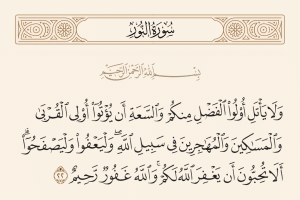 سُورَةُ النُّورِ
بِسْمِ اللَّهِ الرَّحْمَٰنِ الرَّحِيمِ
وَلَا يَأْتَلِ أُو۟لُوا۟ الْفَضْلِ مِنكُمْ وَالسَّعَةِ أَن يُؤْتُوٓا۟ أُو۟لِى الْقُرْبَىٰ
وَالْمَسَٰكِينَ وَالْمُهَٰجِرِينَ فِى سَبِيلِ اللَّهِ ۖ وَلْيَعْفُوا۟ وَلْيَصْفَحُوٓا۟ ۗ
أَلَا تُحِبُّونَ أَن يَغْفِرَ اللَّهُ لَكُمْ ۗ وَاللَّهُ غَفُورٌ رَّحِيمٌ ٢٢